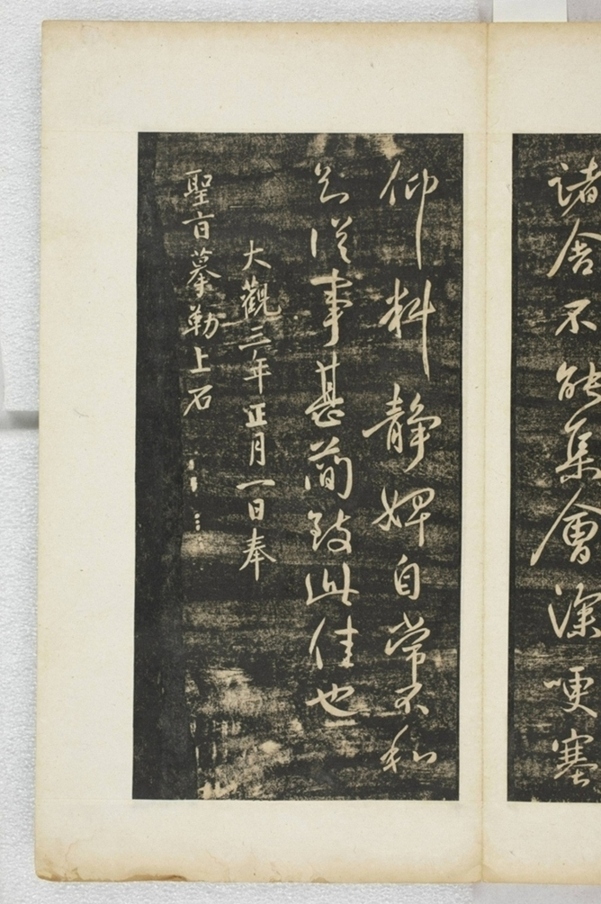 諸舍不能集會深哽塞
仰料靜婢自常不和
云從事甚簡致此佳也
大觀三年正月一日奉
聖旨摹勒上石